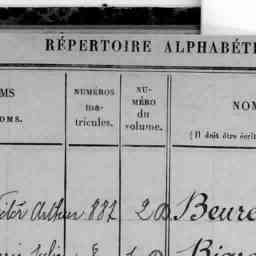 RÉPERTOIRE ALPHABÉTI
MS
OMS.
NUMÉROS
ma-
tricules.
NU-
MÉRO
du
volume.
NOM
(Il doit être écrit
Arthur 887 2 D Beure